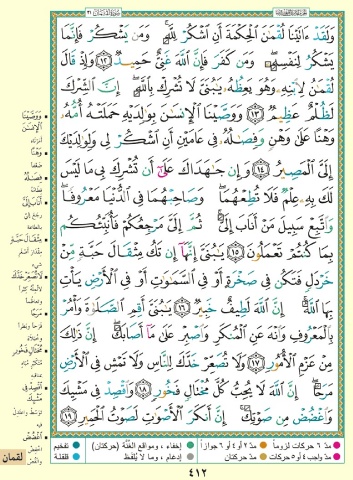 سورة لقمان ٣١
وَلَقَدْ ءَاتَيْنَا لُقْمَٰنَ ٱلْحِكْمَةَ أَنِ ٱشْكُرْ لِلَّهِ ۚ وَمَن يَشْكُرْ فَإِنَّمَا
يَشْكُرُ لِنَفْسِهِۦ ۖ وَمَن كَفَرَ فَإِنَّ ٱللَّهَ غَنِىٌّ حَمِيدٌ ١٢ وَإِذْ قَالَ
لُقْمَٰنُ لِٱبْنِهِۦ وَهُوَ يَعِظُهُۥ يَٰبُنَىَّ لَا تُشْرِكْ بِٱللَّهِ ۖ إِنَّ ٱلشِّرْكَ
لَظُلْمٌ عَظِيمٌ ١٣ وَوَصَّيْنَا ٱلْإِنسَٰنَ بِوَٰلِدَيْهِ حَمَلَتْهُ أُمُّهُۥ
وَهْنًا عَلَىٰ وَهْنٍ وَفِصَٰلُهُۥ فِى عَامَيْنِ أَنِ ٱشْكُرْ لِى وَلِوَٰلِدَيْكَ
إِلَىَّ ٱلْمَصِيرُ ١٤ وَإِن جَٰهَدَاكَ عَلَىٰٓ أَن تُشْرِكَ بِى مَا لَيْسَ
لَكَ بِهِۦ عِلْمٌ فَلَا تُطِعْهُمَا ۖ وَصَاحِبْهُمَا فِى ٱلدُّنْيَا مَعْرُوفًا ۖ
وَٱتَّبِعْ سَبِيلَ مَنْ أَنَابَ إِلَىَّ ۚ ثُمَّ إِلَىَّ مَرْجِعُكُمْ فَأُنَبِّئُكُم
بِمَا كُنتُمْ تَعْمَلُونَ ١٥ يَٰبُنَىَّ إِنَّهَآ إِن تَكُ مِثْقَالَ حَبَّةٍ مِّنْ
خَرْدَلٍ فَتَكُن فِى صَخْرَةٍ أَوْ فِى ٱلسَّمَٰوَٰتِ أَوْ فِى ٱلْأَرْضِ يَأْتِ
بِهَا ٱللَّهُ ۚ إِنَّ ٱللَّهَ لَطِيفٌ خَبِيرٌ ١٦ يَٰبُنَىَّ أَقِمِ ٱلصَّلَوٰةَ وَأْمُرْ
بِٱلْمَعْرُوفِ وَٱنْهَ عَنِ ٱلْمُنكَرِ وَٱصْبِرْ عَلَىٰ مَآ أَصَابَكَ ۖ إِنَّ ذَٰلِكَ
مِنْ عَزْمِ ٱلْأُمُورِ ١٧ وَلَا تُصَعِّرْ خَدَّكَ لِلنَّاسِ وَلَا تَمْشِ فِى ٱلْأَرْضِ
مَرَحًا ۖ إِنَّ ٱللَّهَ لَا يُحِبُّ كُلَّ مُخْتَالٍ فَخُورٍ ١٨ وَٱقْصِدْ فِى مَشْيِكَ
وَٱغْضُضْ مِن صَوْتِكَ ۚ إِنَّ أَنكَرَ ٱلْأَصْوَٰتِ لَصَوْتُ ٱلْحَمِيرِ ١٩
وَوَصَّيْنَا
ٱلْإِنسَٰنَ
وَهْنًا
فِصَٰلُهُۥ
أَنَابَ إِلَىَّ
مِثْقَالَ حَبَّةٍ
لَا تُصَعِّرْ خَدَّكَ
مَرَحًا
مُخْتَالٍ فَخُورٍ
ٱقْصِدْ فِى
مَشْيِكَ
ٱغْضُضْ
مدّ ٦ حركات لزوماً مدّ ٢ أو ٤ أو ٦ جوازاً إخفاء، ومواقع الغُنَّة (حركتان) تفخيم
مدّ واجب ٤ أو ٥ حركات مدّ حركتان إدغام، وما لا يُلفظ قلقلة
لقمان
٤١٢